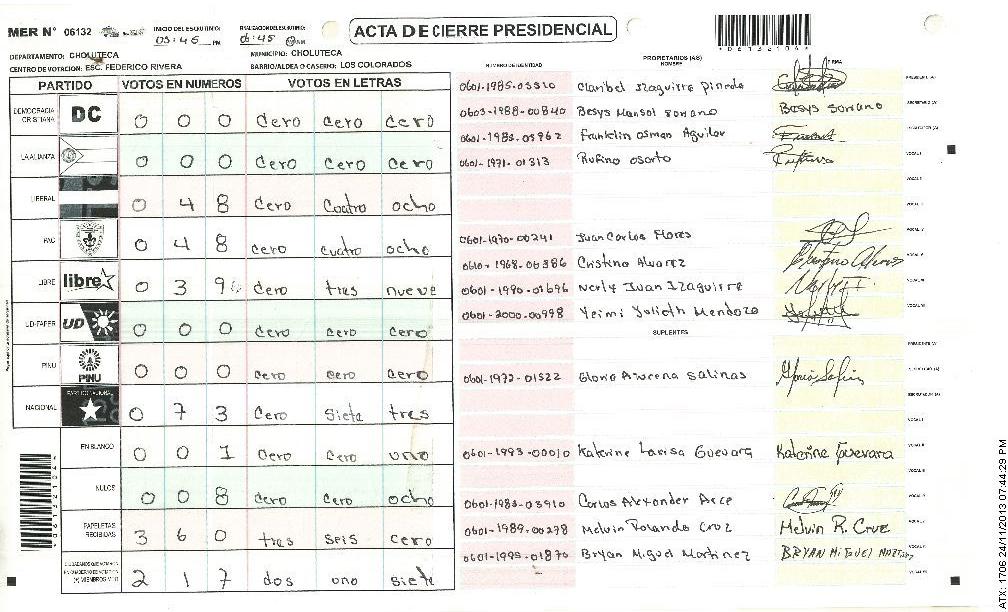 MER N° 06132
INICIO DEL ESCRUTINIO:
05:45 PM
FINALIZACION DEL ESCRUTINIO:
06:45
ACTA DE CIERRE PRESIDENCIAL
06132104
DEPARTAMENTO: CHOLUTECA
MUNICIPIO: CHOLUTECA
CENTRO DE VOTACION: ESC. FEDERICO RIVERA
BARRIO/ALDEA O CASERIO: LOS COLORADOS
PARTIDO VOTOS EN NUMEROS VOTOS EN LETRAS
DEMOCRACIA CRISTIANA DC 0 0 0 Cero Cero Cero
LA ALIANZA 0 0 0 Cero Cero Cero
LIBERAL 0 4 8 Cero Cuatro ocho
PAC 0 4 8 Cero Cuatro ocho
LIBRE libre 0 3 9 Cero tres nueve
UD-FAPER UD 0 0 0 Cero Cero Cero
PINU PINU 0 0 0 Cero Cero Cero
NACIONAL 0 7 3 Cero Siete tres
EN BLANCO 0 0 1 Cero Cero uno
NULOS 0 0 8 Cero Cero ocho
PAPELETAS RECIBIDAS 3 6 0 tres seis Cero
2 1 7 dos uno siete
NUMERO DE IDENTIDAD
PROPIETARIOS (AS)
NOMBRE
FIRMA
0601-1985-03310 Claribel Izaguirre Pineda
PRESIDENTE (A)
0603-1988-00840 Besys Marisol soriano Besys soriano
SECRETARIO (A)
0601-1983-03962 Franklin osman Aguilar
0601-1971-01313 Rufino osorto
VOCAL I
0601-1970-00241 Juan Carlos Flores
0610-1968-00386 Cristino Alvarez
0601-1990-01696 Nerly Juan Izaguirre
0601-2000-00998 Yeimi Yolieth Mendoza
SUPLENTES
PRESIDENTE (A)
0601-1972-01522 Gloria Azucena Salinas
0601-1993-00010 Katerine Larisa Guevara Katerine Guevara
0601-1983-03910 Carlos Alexander Arce
0601-1989-00278 Melvin Rolando Cruz Melvin R. Cruz
0601-1995-01870 Bryan Miguel Martinez BRYAN MIGUEL MARTINEZ
ATX: 1706 24/11/2013 07:44:29 PM